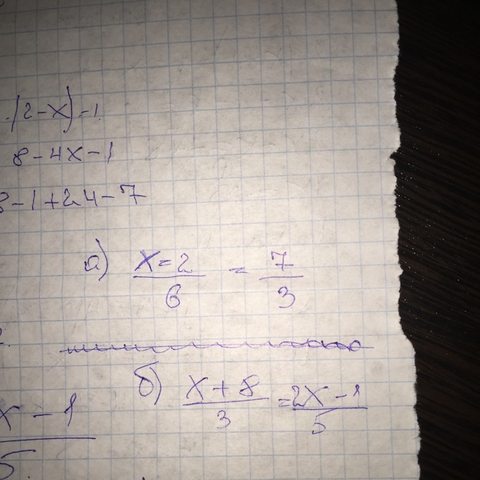 ·(2-x)-1
8-4x-1
8-1+24-7
а) x-2/6 = 7/3
б) x+8/3 = 2x-1/5
x-1/5